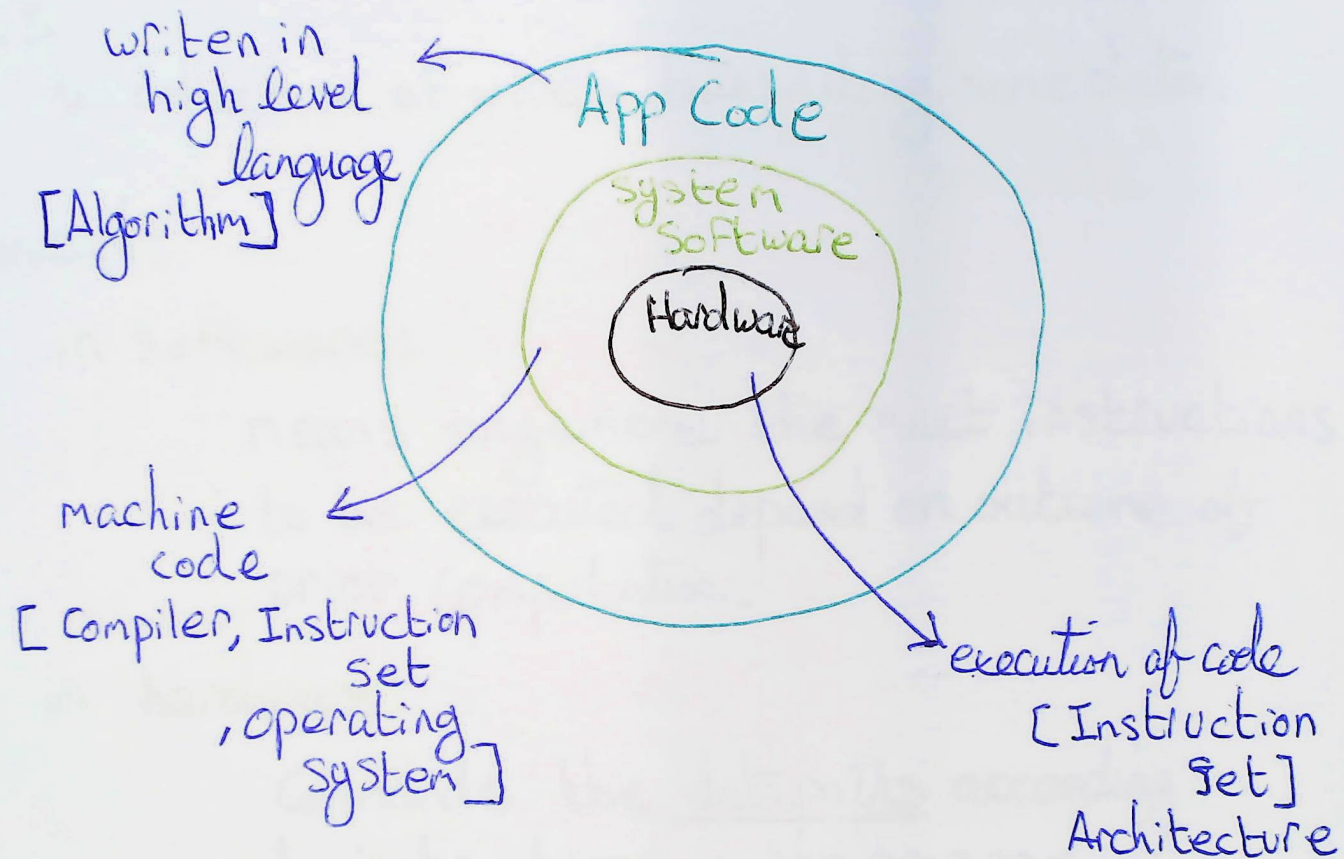 writen in
high level
language
[Algorithm]
App Code
system
Software
Hardware
machine
code
[ Compiler, Instruction
set
, operating
system ]
execution of code
[ Instruction
set ]
Architecture